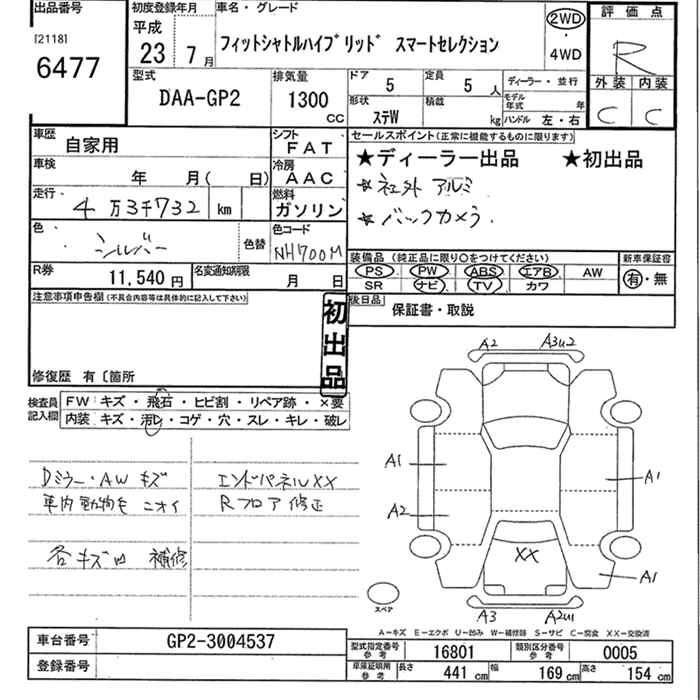 出品番号 初度登録年月 車名・グレード 評価点
[2118] 平成 2WD
6477 23 7月 フィットシャトルハイブリッド スマートセレクション 4WD R
型式 排気量 ドア 定員 ディーラー・並行 外装 内装
DAA-GP2 1300 CC 5 5人 モデル年式 年 C C
形状 積載
ステW kg ハンドル 左・右
車歴 自家用 シフト FAT セールスポイント(正常に機能するものに限ります)
車検 年 月( 日) 冷房 AAC ★ディーラー出品 ★初出品
走行 4万3千732 km 燃料 ガソリン ☆社外 アルミ
☆バックカメラ.
色 シルバー 色替 色コード NH700M
装備品(純正品に限り○をつけてください) 新車保証書
PS PW ABS エアB AW 有・無
SR ナビ TV カワ
R券 11,540円 名変通知期限 月 日
後日品 保証書・取説
注意事項申告欄(不具合内容等は具体的に記入して下さい)
初出品
修復歴 有〔箇所
検査員記入欄 FW キズ・飛石・ヒビ割・リペア跡・×要
内装 キズ・汚レ・コゲ・穴・スレ・キレ・破レ
Dミラー・AW キズ エンドパネルXX
車内動物毛 ニオイ Rフロア修正
各キズ凹 補修
A2 A3U2
A1 A1
A2
XX
A1
スペア
A3 A2U1
A-キズ E-エクボ U-凹み W-補修跡 S-サビ C-腐食 XX-交換済
車台番号 GP2-3004537
登録番号
型式指定番号参考 16801 類別区分番号参考 0005
車庫証明用参考 長さ 441 cm 幅 169 cm 高さ 154 cm